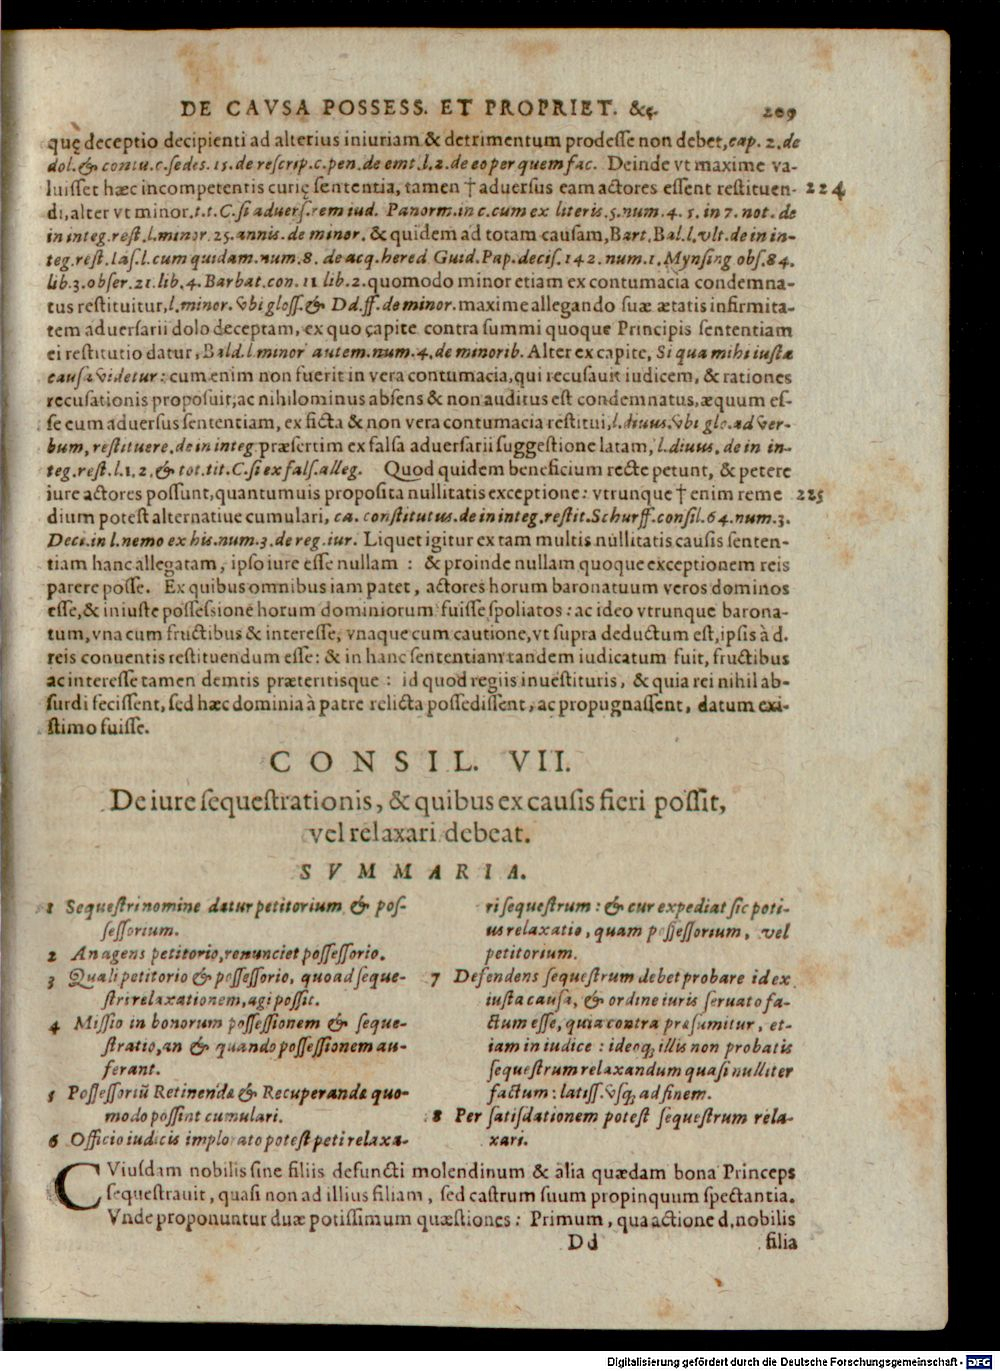 DE CAVSA POSSESS. ET PROPRIET. &c. 209
quę deceptio decipienti ad alterius iniuriam & detrimentum prodesse non debet, cap. 2. de
dol. & contu. c. sedes. 15. de rescrip. c. pen. de emt. l. 2. de eo per quem fac. Deinde vt maxime va-
luisset hæc incompetentis curię sententia, tamen † aduersus eam actores essent restituen- 224
di, alter vt minor. t. t. C. si aduers. rem iud. Panorm. in c. cum ex literis. 5. num. 4. 5. in 7. not. de
in integ. rest. l. minor. 25. annis. de minor. & quidem ad totam causam, Bart. Bal. l. vlt. de in in-
teg. rest. Ias. l. cum quidam. num. 8. de acq. hered Guid. Pap. decis. 142. num. 1. Mynsing obs. 84.
lib. 3. obser. 21. lib. 4. Barbat. con. 11 lib. 2. quomodo minor etiam ex contumacia condemna-
tus restituitur, l. minor. vbi gloss. & Dd. ff. de minor. maxime allegando suæ ætatis infirmita-
tem aduersarii dolo deceptam, ex quo capite contra summi quoque Principis sententiam
ei restitutio datur, Bald. l. minor autem. num. 4. de minorib. Alter ex capite, Si qua mihi iusta
causa videtur: cum enim non fuerit in vera contumacia, qui recusauit iudicem, & rationes
recusationis proposuit, ac nihilominus absens & non auditus est condemnatus, æquum es-
se eum aduersus sententiam, ex ficta & non vera contumacia restitui, l. diuus. vbi glo. ad ver-
bum, restituere. de in integ. præsertim ex falsa aduersarii suggestione latam, l. diuus. de in in-
teg. rest. l. 1, 2. & tot. tit. C. si ex fals. alleg. Quod quidem beneficium recte petunt, & petere
iure actores possunt, quantumuis proposita nullitatis exceptione: vtrunque † enim reme 225
dium potest alternatiue cumulari, ca. constitutus. de in integ. restit. Schurff. consil. 64. num. 3.
Deci. in l. nemo ex his. num. 3. de reg. iur. Liquet igitur ex tam multis nullitatis causis senten-
tiam hanc allegatam, ipso iure esse nullam : & proinde nullam quoque exceptionem reis
parere posse. Ex quibus omnibus iam patet, actores horum baronatuum veros dominos
esse, & iniuste possessione horum dominiorum fuisse spoliatos: ac ideo vtrunque barona-
tum, vna cum fructibus & interesse, vnaque cum cautione, vt supra deductum est, ipsis à d.
reis conuentis restituendum esse: & in hanc sententiam tandem iudicatum fuit, fructibus
ac interesse tamen demtis præteritisque : id quod regiis inuestituris, & quia rei nihil ab-
surdi fecissent, sed hæc dominia à patre relicta possedissent, ac propugnassent, datum exi-
stimo fuisse.
CONSIL. VII.
De iure sequestrationis, & quibus ex causis fieri possit,
vel relaxari debeat.
SVMMARIA.
1 Sequestri nomine datur petitorium & pos-
sessorium.
2 An agens petitorio, renunciet possessorio.
3 Quali petitorio & possessorio, quoad seque-
stri relaxationem, agi possit.
4 Missio in bonorum possessionem & seque-
stratio, an & quando possessionem au-
ferant.
5 Possessoriū Retinendæ & Recuperandæ quo-
modo possint cumulari.
6 Officio iudicis implorato potest peti relaxa-
ri sequestrum : & cur expediat sic poti-
us relaxatio, quam possessorium, vel
petitorium.
7 Defendens sequestrum debet probare id ex
iusta causa, & ordine iuris seruato fa-
ctum esse, quia contra præsumitur, et-
iam in iudice : ideoq; illis non probatis
sequestrum relaxandum quasi nulliter
factum: latiss. vsq; ad finem.
8 Per satisdationem potest sequestrum rela-
xari.
CViusdam nobilis sine filiis defuncti molendinum & alia quædam bona Princeps
sequestrauit, quasi non ad illius filiam, sed castrum suum propinquum spectantia.
Vnde proponuntur duæ potissimum quæstiones: Primum, qua actione d. nobilis
Dd filia
Digitalisierung gefördert durch die Deutsche Forschungsgemeinschaft - DFG